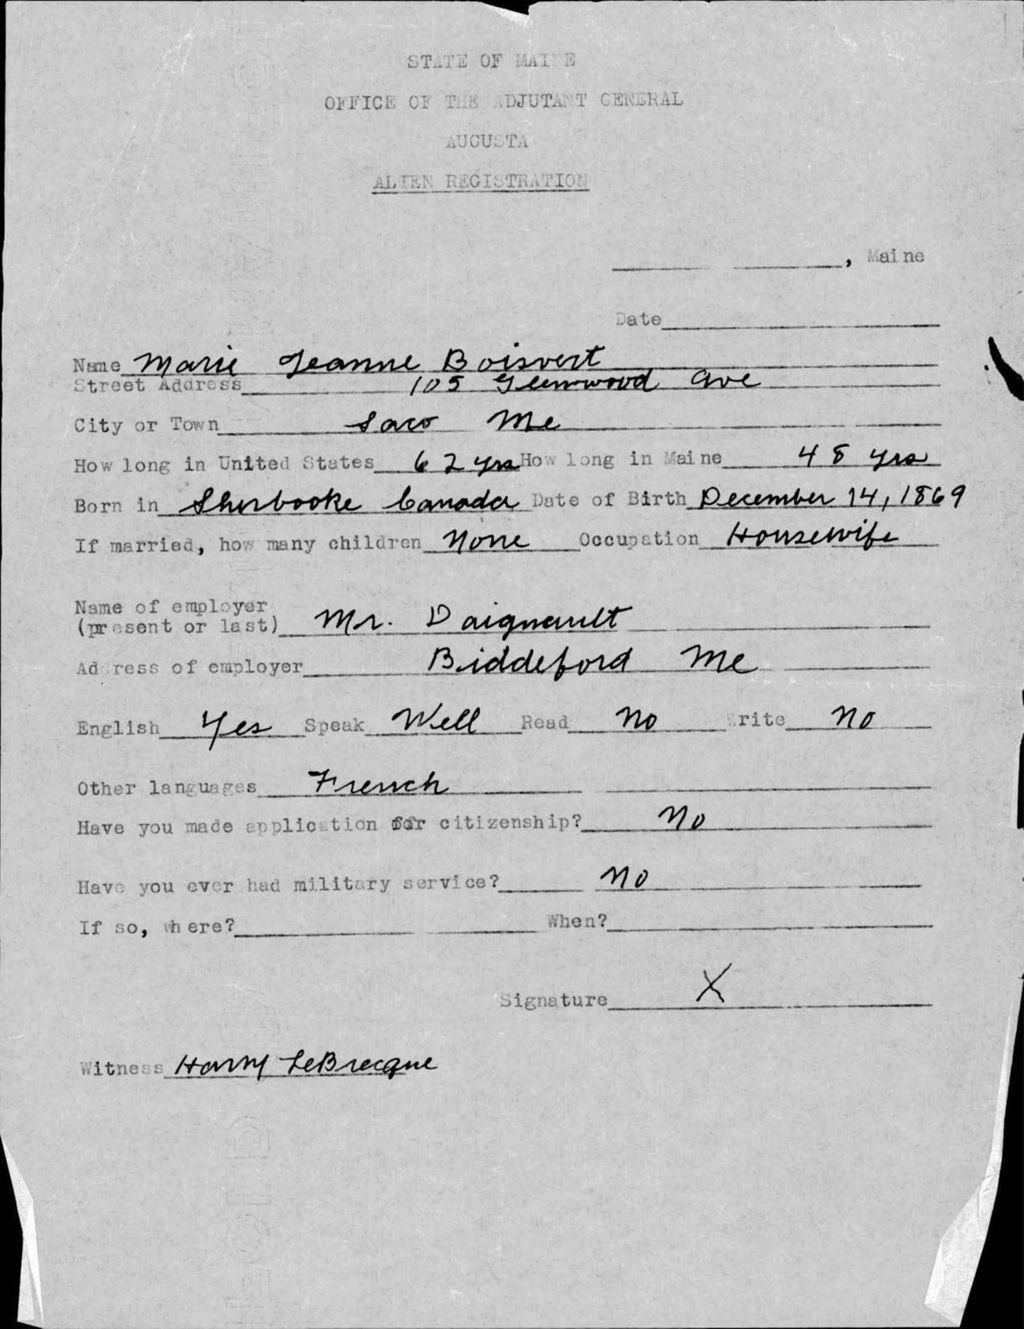 STATE OF MAINE
OFFICE OF THE ADJUTANT GENERAL
AUGUSTA
ALIEN REGISTRATION
, Maine
Date
Name Marie Jeanne Boisvert
Street Address 105 Glenwood Ave
City or Town Saco Me
How long in United States 62 yrs How long in Maine 48 yrs
Born in Sherbooke Canada Date of Birth December 14, 1869
If married, how many children None Occupation Housewife
Name of employer
(present or last) Mr. Daignault
Address of employer Biddeford Me
English Yes Speak Well Read No Write No
Other languages French
Have you made application for citizenship? No
Have you ever had military service? No
If so, where? When?
Signature X
Witness Harry LeBrecque